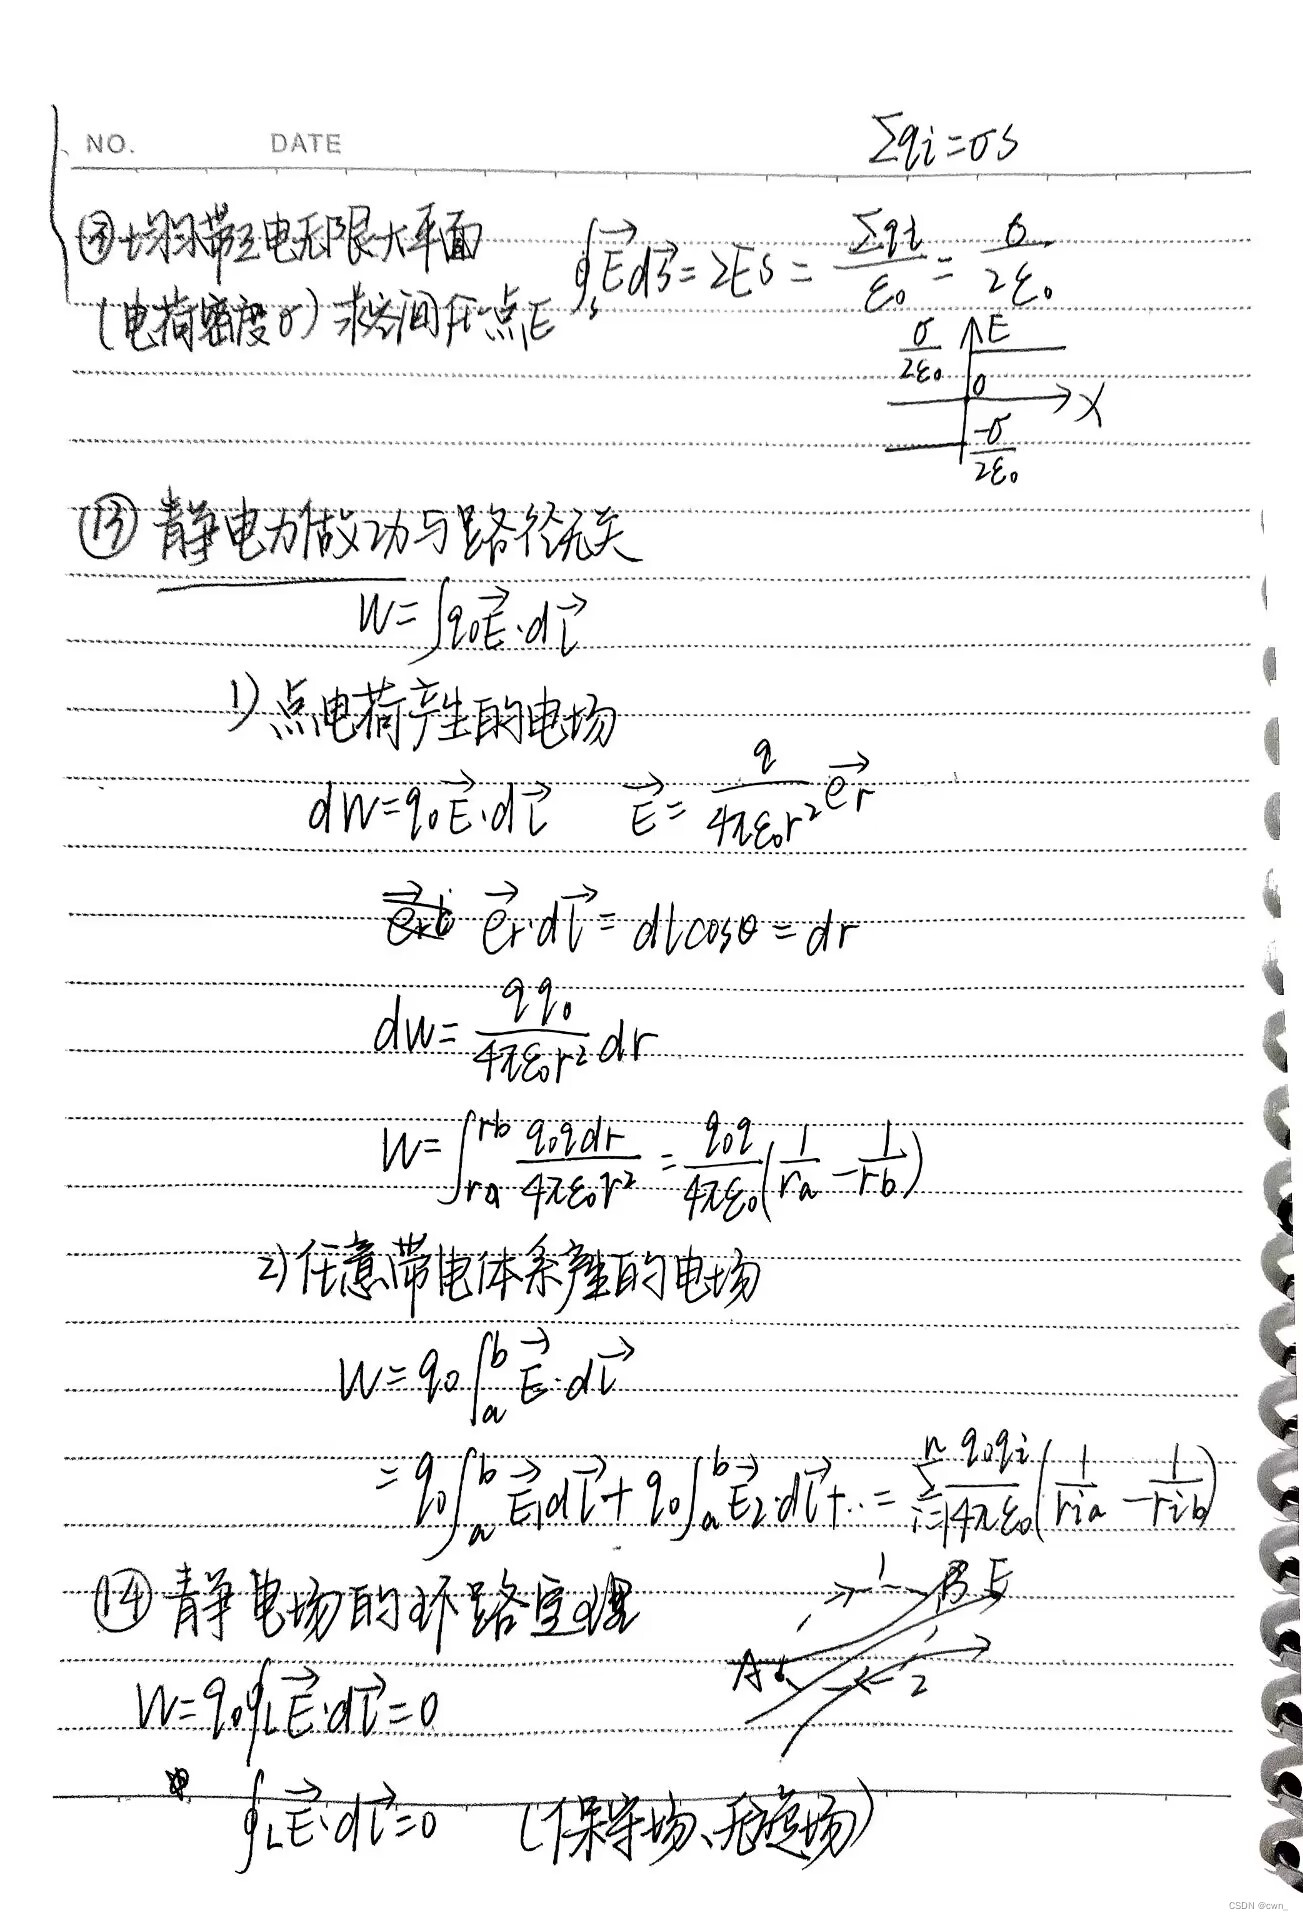 NO. DATE
∑qi=σs
均匀带正电无限大平面
(电荷密度σ) 求空间任一点E
∮s E⃗dS⃗ = 2ES = ∑qi/ε₀ = σ/2ε₀
σ/2ε₀ E
0 X
-σ/2ε₀
⑬ 静电力做功与路径无关
W=∫q₀E⃗·dl⃗
1) 点电荷产生的电场
dW=q₀E⃗·dl⃗ E⃗= q/4πε₀r² e⃗r
e⃗r·dl⃗ = dlcosθ = dr
dW= qq₀/4πε₀r² dr
W=∫ra^rb q₀qdr/4πε₀r² = q₀q/4πε₀ (1/ra - 1/rb)
2) 任意带电体系产生的电场
W=q₀∫a^b E⃗·dl⃗
=q₀∫a^b E⃗₁dl⃗+q₀∫a^b E⃗₂·dl⃗+.. = ∑i=1^n q₀qi/4πε₀ (1/ria - 1/rib)
⑭ 静电场的环路定理
1 B E
A 2
W=q₀∮L E⃗·dl⃗=0
∮L E⃗·dl⃗=0 (保守场、无旋场)
CSDN @cwn_